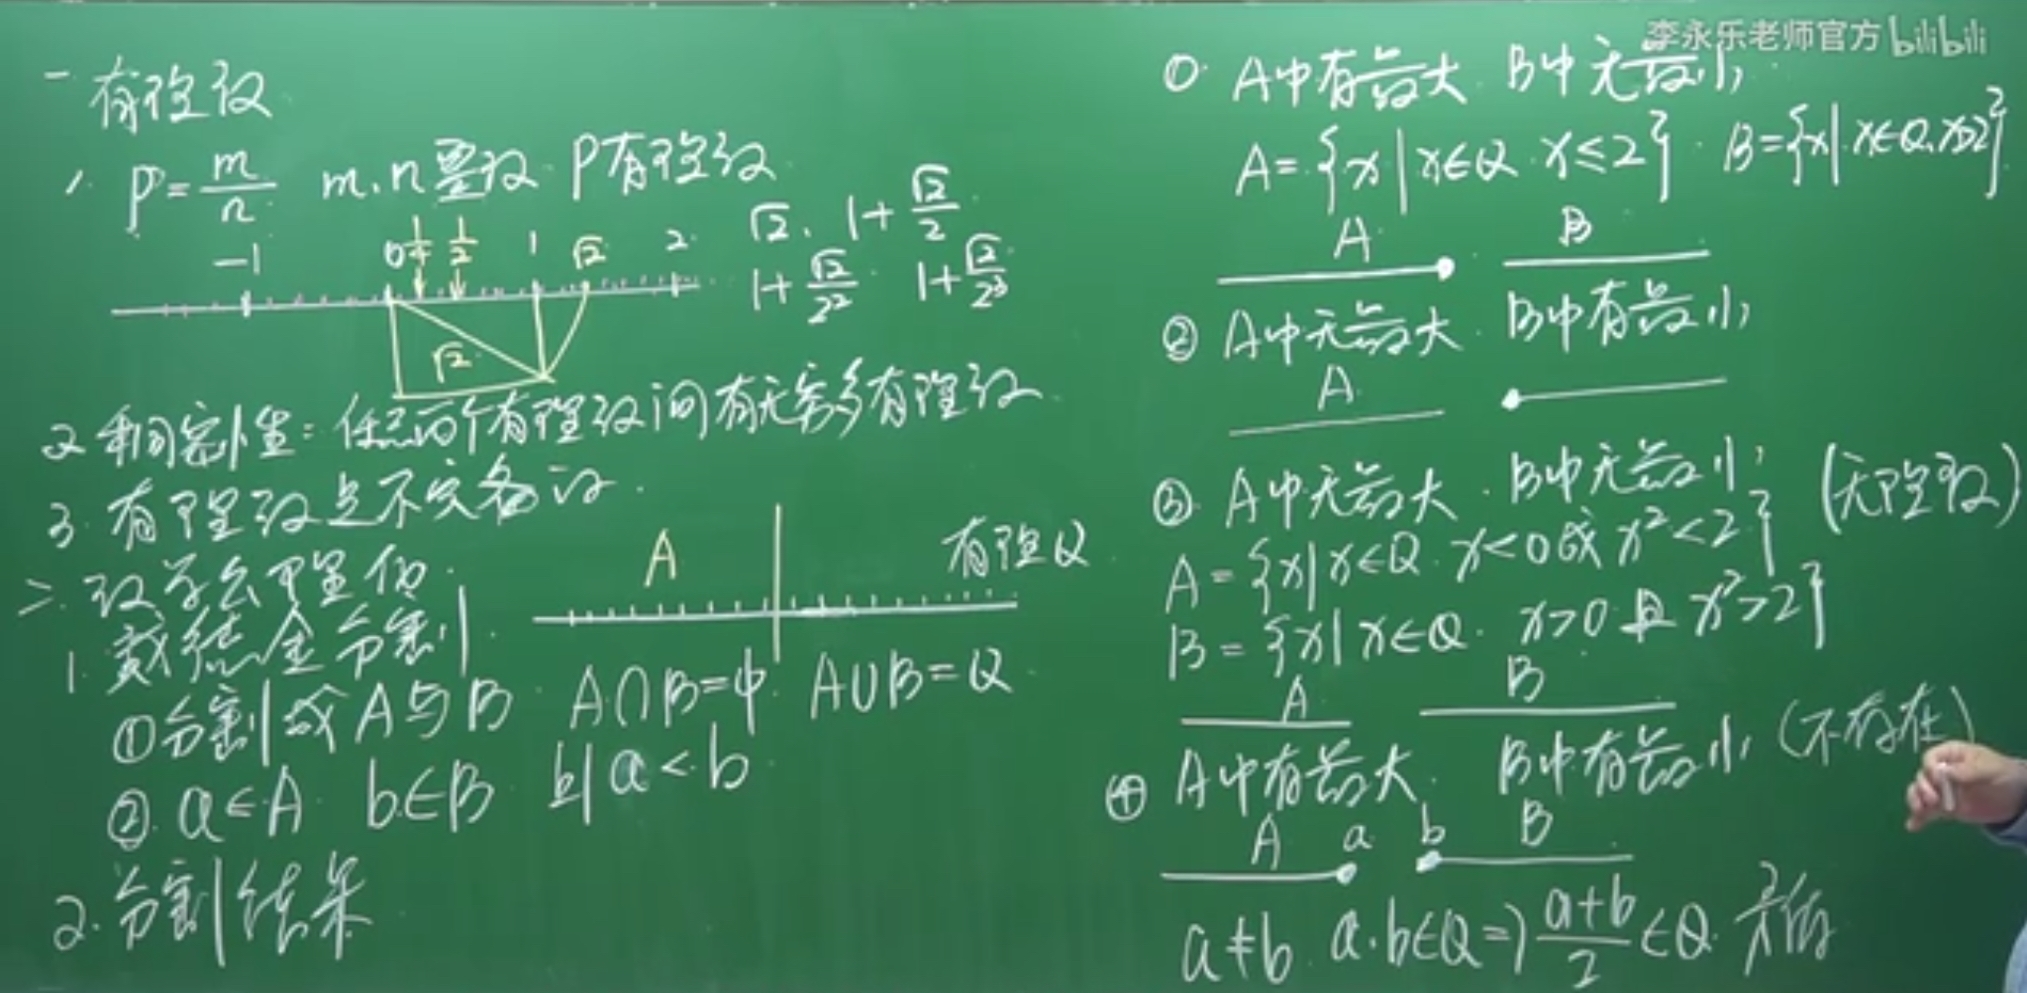 李永乐老师官方 bilibili
一 有理数
1. P=m/n m.n整数 P有理数
-1 0 1/4 1/2 1 √2 2
√2. 1+√2/2
1+√2/2² 1+√2/2³
√2
2 稠密性：任意两个有理数间有无穷多有理数
3. 有理数是不完备的.
二. 数学公理化.
1. 戴德金分割.
A 有理Q
①分割成A与B A∩B=ф. A∪B=Q
②. a∈A b∈B 则 a<b
2. 分割结果
① A中有最大 B中无最小
A={x|x∈Q x≤2} B={x|x∈Q, x>2}
A B
② A中无最大. B中有最小
A
③ A中无最大. B中无最小 (无理数)
A={x|x∈Q. x<0或x²<2}
B={x|x∈Q. x>0且x²>2}
A B
④ A中有最大. B中有最小 (不存在)
A a b B
a≠b. a.b∈Q⇒(a+b)/2∈Q. 矛盾